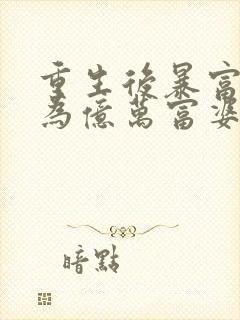 重生後暴富
為億萬富婆
暗點